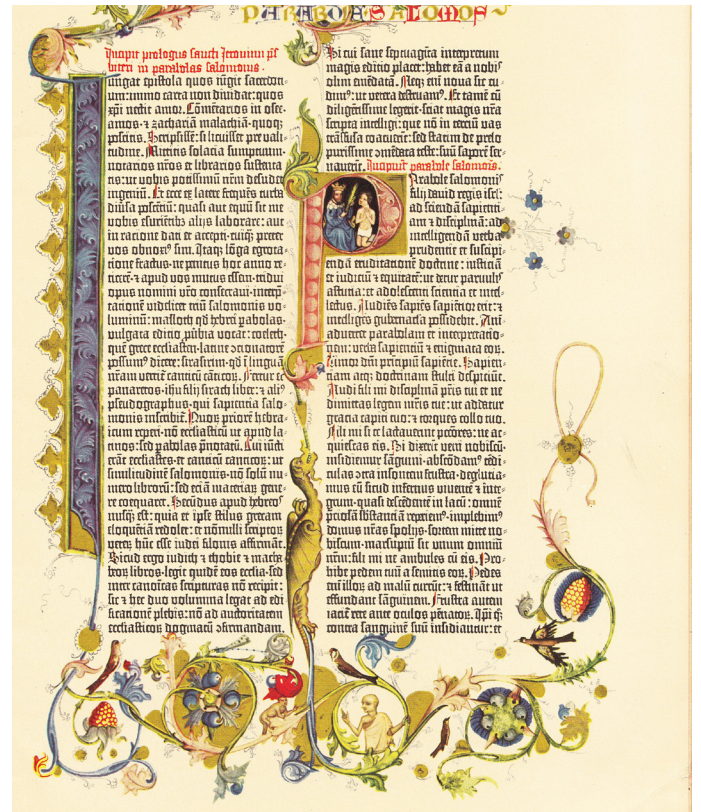 PARABOLE SALOMONIS
Incipit prologus sancti Jeronimi p̄s
biteri in parabolas salomonis
Iungat epistola quos iūgit sacerdoti-
um: immo carta non dividat: quos
xp̄i nectit amor. Cōmētarios in osee.
amos. ⁊ zachariā malachiā· quoq̄
poscitis. Scripsissē: si licuisset pre vali-
tudine. Mittitis solacia sumptuum·
notarios n̄ros et librarios sustenta-
tis: ut vobis potissimū n̄rm desudet
ingeniū. Et ecce ex latere frequēs turba
diūsa poscētiū: quasi aut equū sit me
vobis esurientibȝ alijs laborare: aut
in racione dati et accepti· cuiq̄ȝ preter
vos obnoxi⁹ sim. Itaq̄ȝ lōga egrota-
cione fractus· ne penitus hoc anno re-
ticerē· ⁊ apud vos mutus essem· tridui
opus nomini v̄ro consecraui· interp̄-
tacionē videlicet triū salomonis vo-
luminū: masloth qd̄ hebrei ꝑabolas·
vulgata editio ꝓūbia vocat: coeleth·
quē grece ecclesiasten· latine ↄcionatorē
possum⁹ dicere: sirasirim· qd̄ ī linguā
n̄ram vertit̄ canticū cāticoꝝ. Fertur et
panaretos· ihū filij sirach liber: ⁊ ali⁹
pseudographus· qui sapientia salo-
monis inscribit̄. Quoꝝ priorē hebra-
icum repperi· nō ecclesiasticū ut apud la-
tinos: sed ꝑabolas p̄notatū. Cui iūcti
erāt ecclesiastes· et canticū canticoꝝ: ut
similitudinē salomonis· nō solū nu-
mero librorū: sed etiā materiaꝝ gene-
re coequaret. Secūdus apud hebreos
nusq̄ȝ est: quia et ipse stilus grecam
eloquētiā redolet: et nōnulli scriptoꝝ
veteꝝ hūc esse iudei filonis affirmāt.
Sicut ergo iudith ⁊ thobie ⁊ macha-
beoꝝ libros· legit quidē eos ecclesia· sed
inter canonicas scripturas nō recipit:
sic ⁊ hec duo volumina legat ad edi-
ficationē plebis: nō ad auctoritatem
ecclesiasticoꝝ dogmatū ↄfirmandam.
Si cui sane septuaginta interpretum
magis editio placet: habet eā a nobis
olim emēdatā. Neqȝ eni nova sic cu-
dim⁹: ut vetera destruam⁹. Et tamē cū
diligētissime legerit· sciat magis n̄ra
scripta intelligi: que nō in terciū vas
trāsfusa coacuerīt: sed statim de prelo
purissime ↄmēdata teste: suū saporē ser-
vaverīt. Incipiūt parabole salomonis·
Parabole salomonis
filij david regis isrl̄:
ad sciendā sapienti-
am ⁊ disciplinā: ad
intelligendā verba
prudentie et suscipi-
endā eruditationē doctrine: iusticiā
et iudiciū ⁊ equitatē: ut detur parvulis
astutia: et adolescenti scientia et intel-
lectus. Audiēs sapiēs sapiētior erit: ⁊
intelligēs gubernacla possidebit. Ani-
advertet parabolam et interpretatio-
nem: verba sapientiū ⁊ enigmata eoꝝ.
Timor dn̄i principiū sapiētie. Sapien-
tiam atqȝ doctrinam stulti despiciūt.
Audi fili mi disciplinā pr̄is tui et ne
dimittas legem mr̄is tue: ut addatur
gracia capiti tuo: ⁊ torques collo tuo.
Fili mi si te lactaverīt pctōres: ne ac-
quiescas eis. Si dixerīt veni nobiscū·
insidiemur sāguini· abscōdam⁹ tēdi-
culas ↄtra insontem frustra· degluti-
amus eū sicud infernus viventē ⁊ inte-
grum· quasi descēdentē in lacū: omnē
p̄ciosā sb̄stantiā reperiem⁹· implebim⁹
domus n̄ras spolijs· sortem mitte no-
biscum· marsupiū sit unum omniū
n̄rm: fili mi ne ambules cū eis. Pro-
hibe pedem tuū a semitis eoꝝ. Pedes
eni illoꝝ ad malū currūt: ⁊ festināt ut
effundant sāguinem. Frustra autem
iacit̄ rete ante oculos pēnatoꝝ. Ip̄i q̄ȝ
contra sanguinē suū insidiantur: et